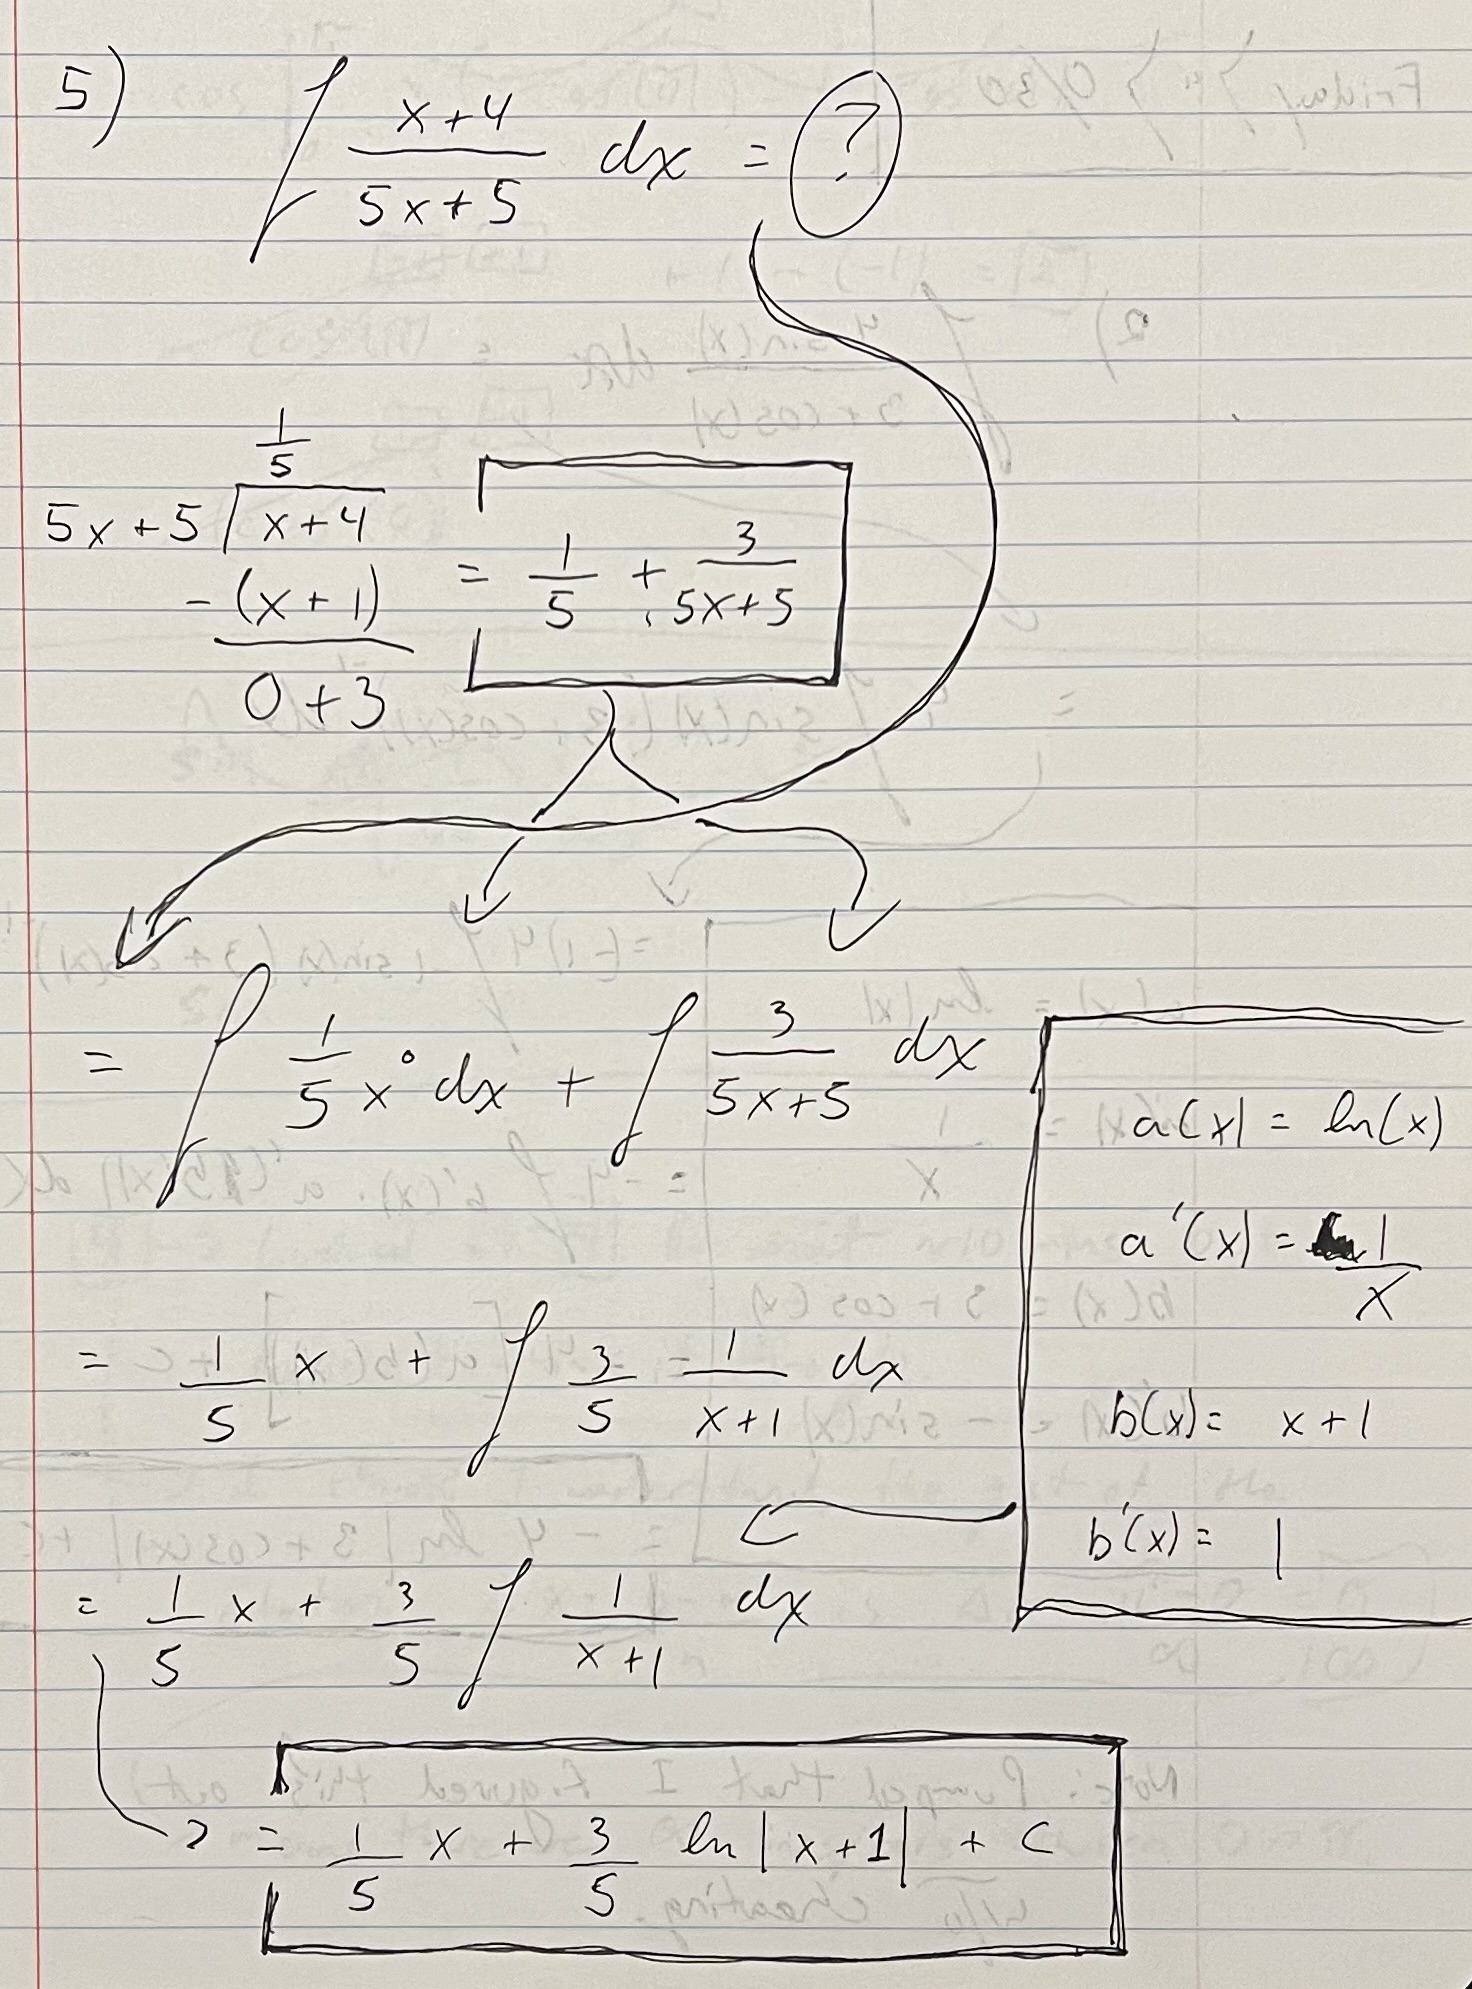 5) ∫ (x+4)/(5x+5) dx = ?
1/5
5x+5 ⟌ x+4
-(x+1) = 1/5 + 3/(5x+5)
0+3
= ∫ 1/5 x⁰ dx + ∫ 3/(5x+5) dx
a(x) = ln(x)
a'(x) = 1/x
b(x) = x+1
b'(x) = 1
= 1/5 x + ∫ 3/5 · 1/(x+1) dx
= 1/5 x + 3/5 ∫ 1/(x+1) dx
= 1/5 x + 3/5 ln|x+1| + C